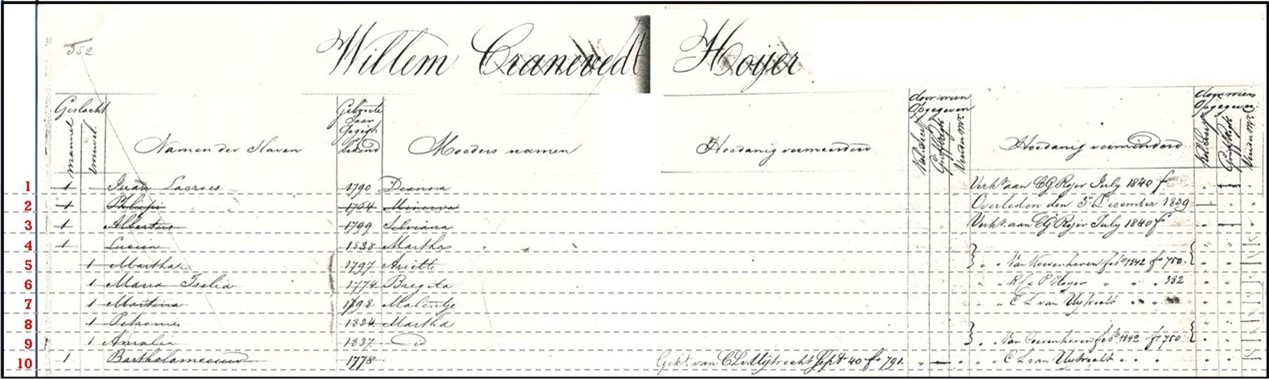 352
Willem Cranevedt Hoijer
Geslacht
mannel
vrouwel
Namen der Slaven
Geboorte Jaar
Moeders namen
Hoedanig vermeerderd
door wien Opgegeven
Hoedanig verminderd
door wien Opgegeven
1 1 Juan Lacroes 1790 Deanora Verkt. aan CG Royer July 1840 f
2 1 Philipi 1754 Minerva Overleden den 5n December 1839
3 1 Albertus 1799 Silviana Verkt. aan CG Royer July 1840 f
4 1 Lucien 1838 Martha
5 1 Martha 1797 Ariett " " Van Voorenhoven feb. 1842 f 750.
6 1 Maria Iselia 1772 Bregita " " " " 332
7 1 Martina 1798 Malentje " " C L van Uytrecht " " "
8 1 Petrona 1824 Martha
9 1 Amalia 1837 " " Van Voorenhoven feb. 1842 f 750
10 1 Bartholomeeuw 1778 Gekt. van CLvUijtrecht Sept 40 f 791. " " C L van Uytrecht " " "